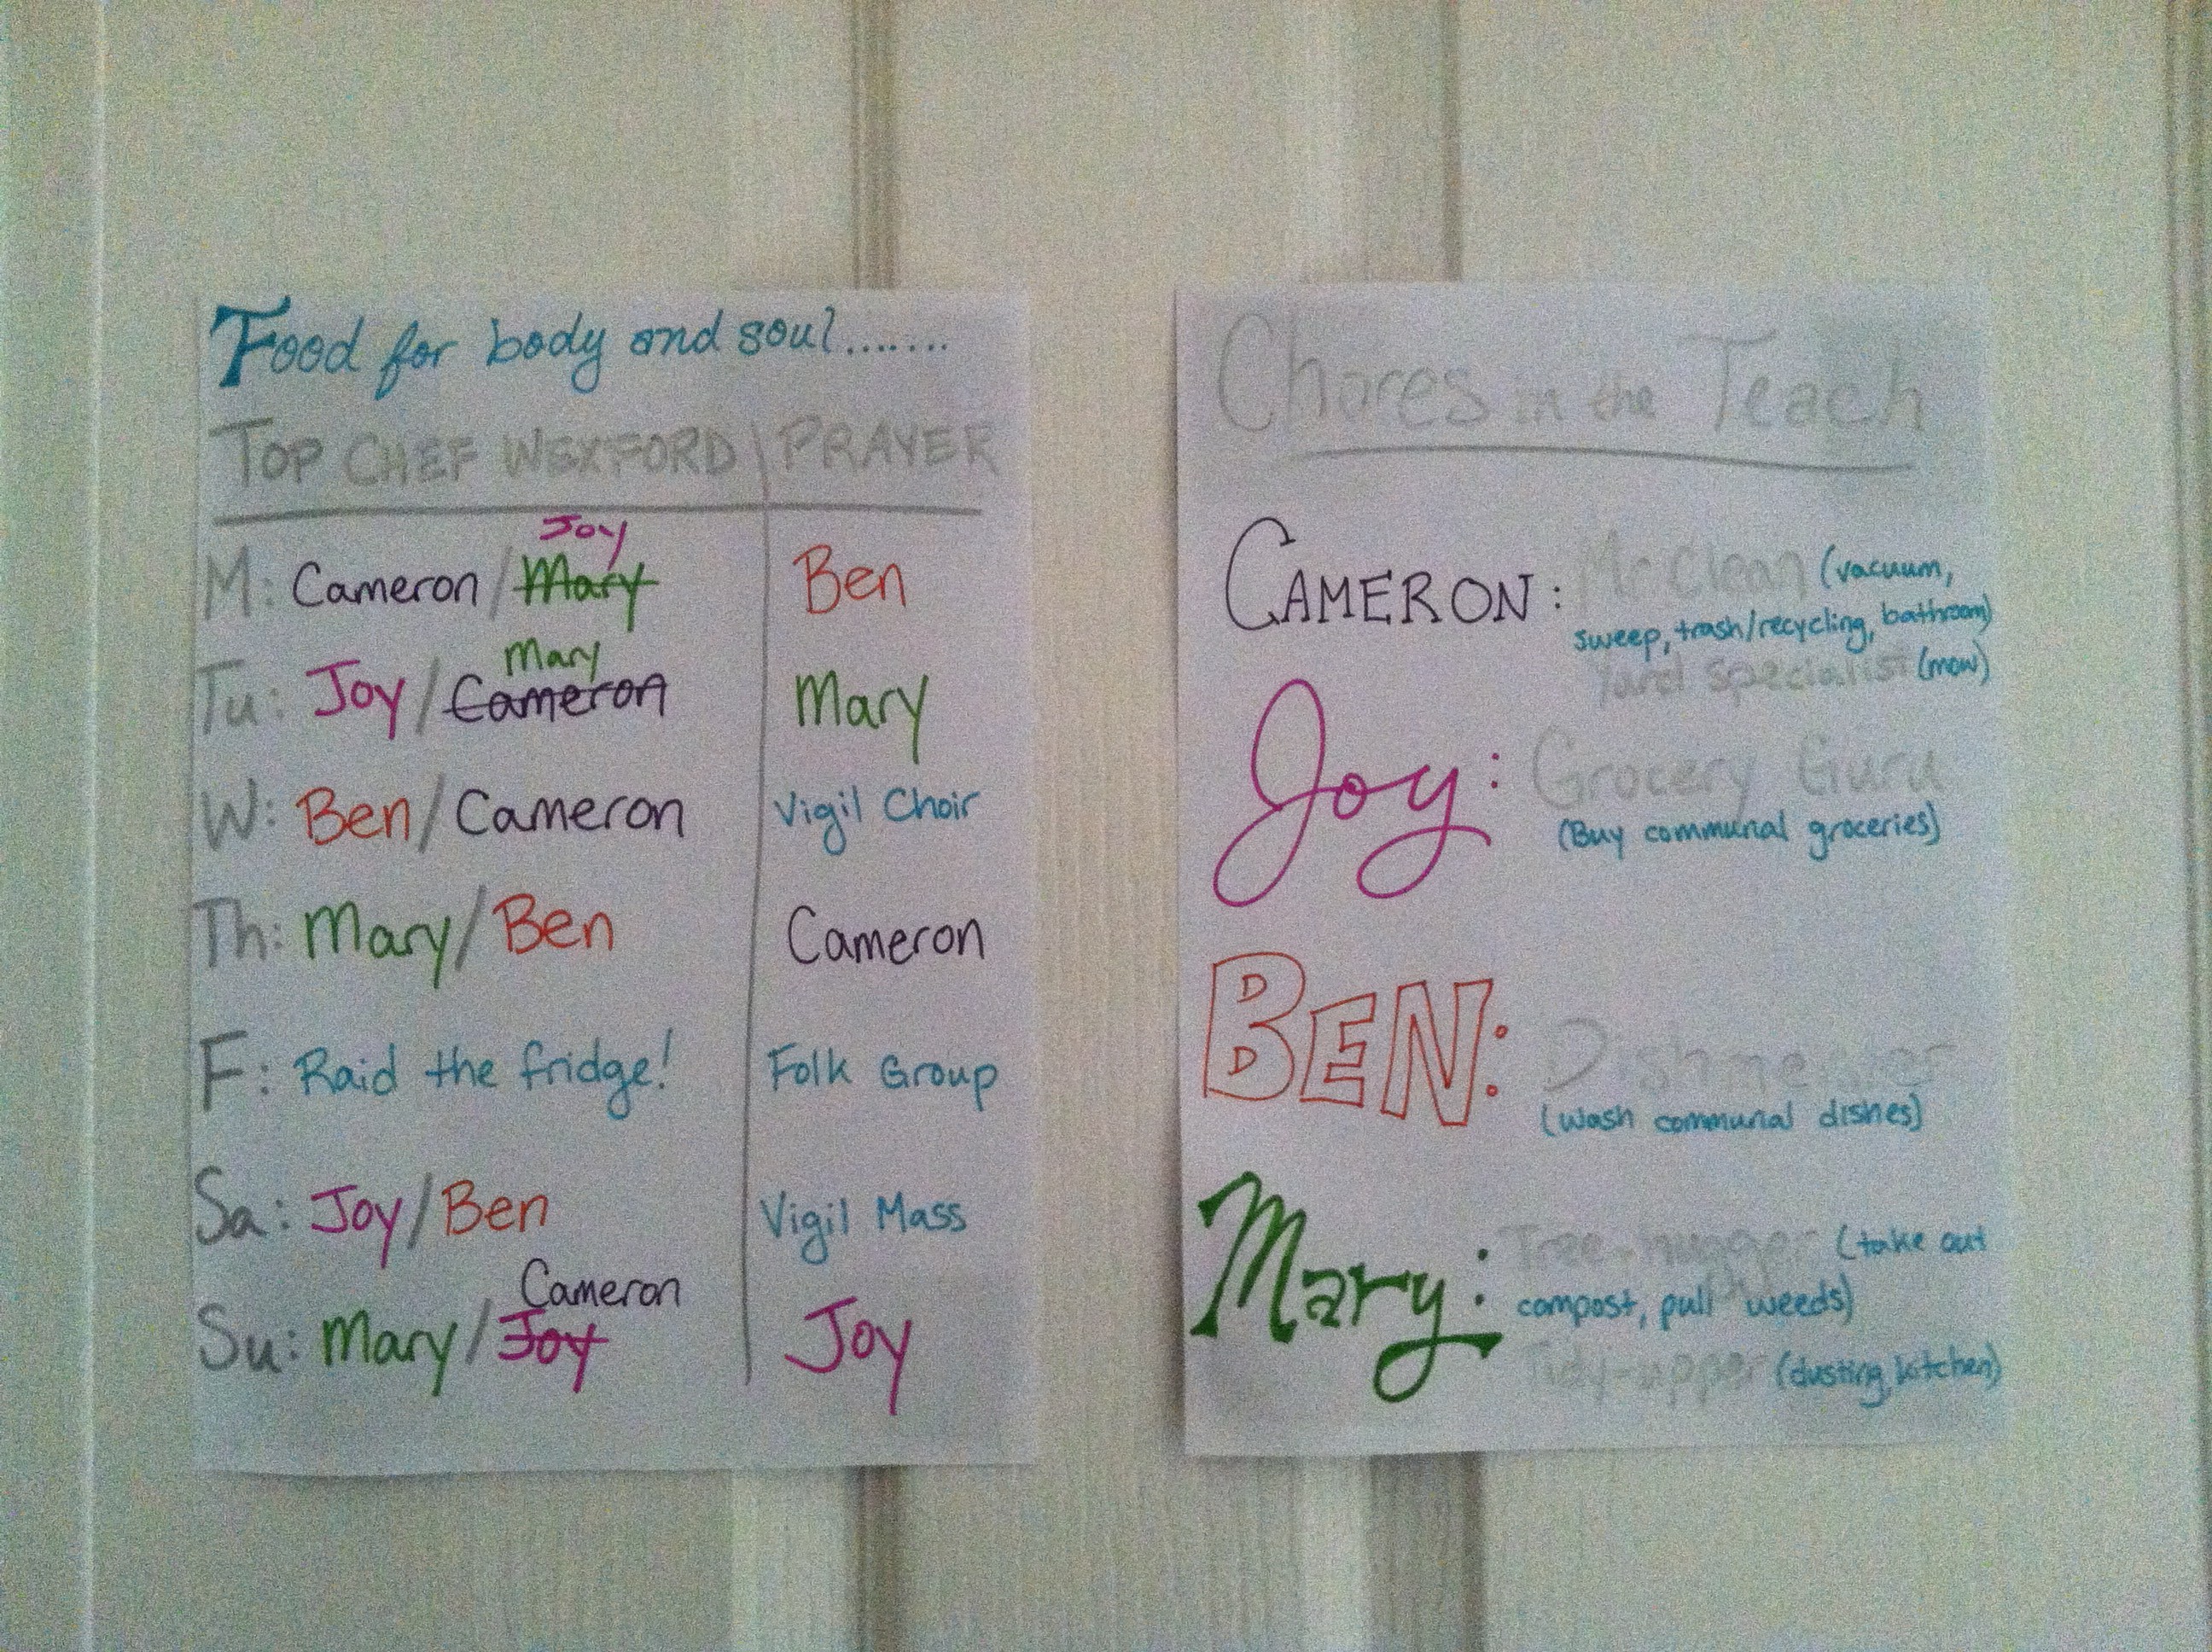 Food for body and soul.......
TOP CHEF WEXFORD | PRAYER
Joy
M: Cameron/Mary Ben
Mary
Tu: Joy/Cameron Mary
W: Ben/Cameron Vigil Choir
Th: Mary/Ben Cameron
F: Raid the fridge! Folk Group
Sa: Joy/Ben Vigil Mass
Cameron
Su: Mary/Joy Joy
Chores in the Teach
CAMERON: Mr Clean (vacuum,
sweep, trash/recycling, bathroom)
Yard specialist (mow)
Joy: Grocery Guru
(Buy communal groceries)
BEN: Dishmeister
(wash communal dishes)
Mary: Tree-hugger (take out
compost, pull weeds)
Tidy-upper (dusting, kitchen)